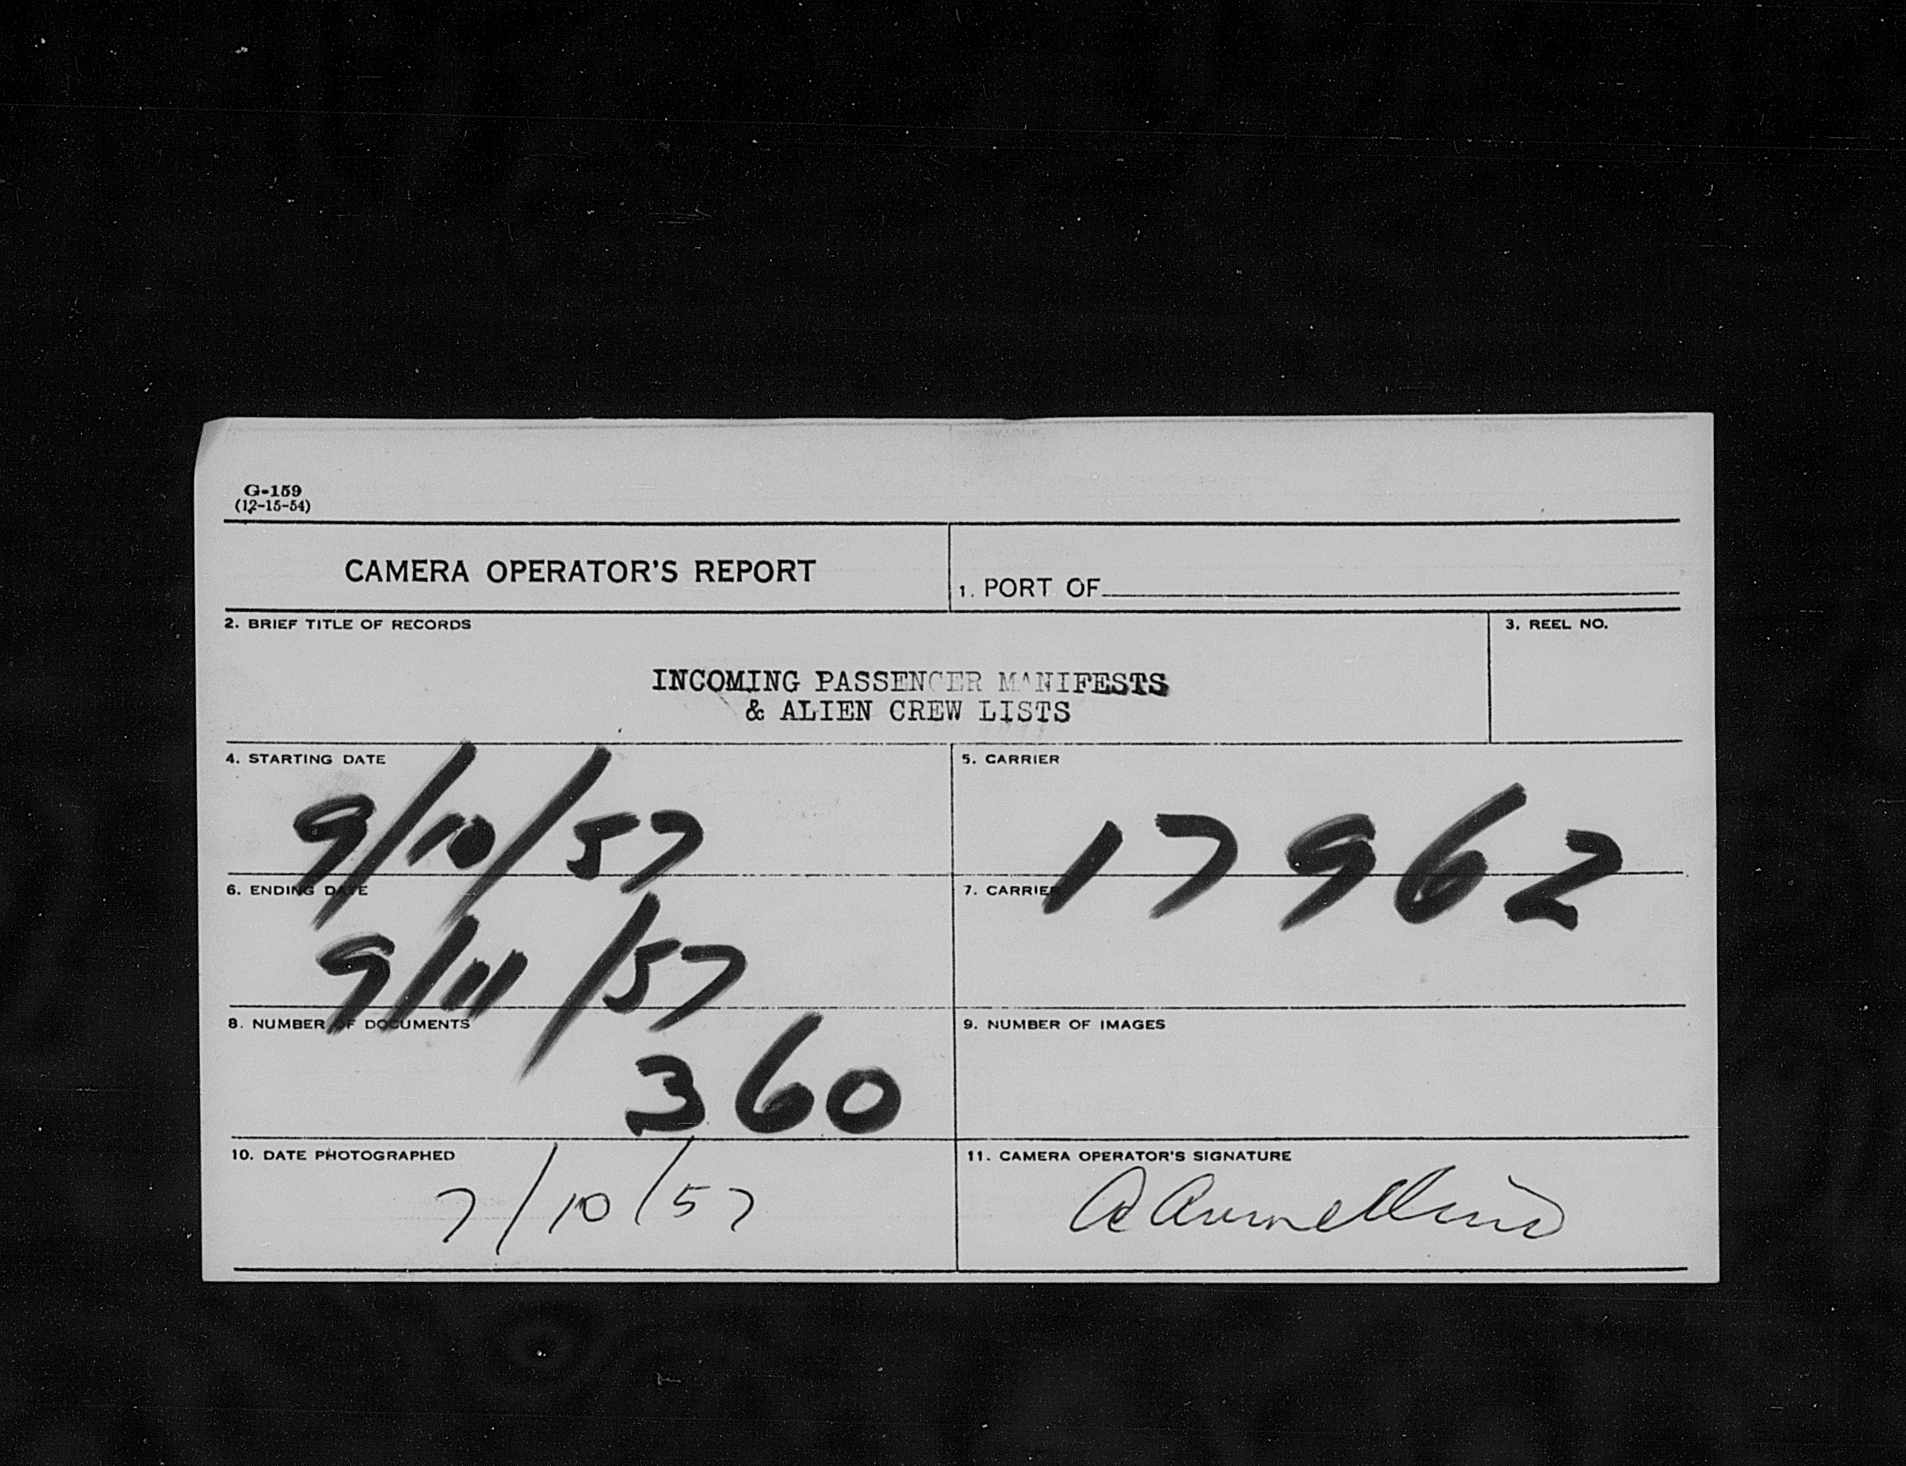 G-159
(12-15-54)
CAMERA OPERATOR'S REPORT
1. PORT OF
2. BRIEF TITLE OF RECORDS
3. REEL NO.
INCOMING PASSENGER MANIFESTS
& ALIEN CREW LISTS
4. STARTING DATE
9/10/57
5. CARRIER
17962
6. ENDING DATE
9/11/57
7. CARRIER
8. NUMBER OF DOCUMENTS
360
9. NUMBER OF IMAGES
10. DATE PHOTOGRAPHED
7/10/57
11. CAMERA OPERATOR'S SIGNATURE